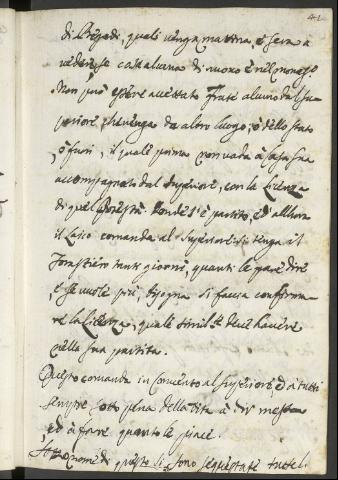 42
di Brigadi, quali venga mattina, e sera à
veder se cosa alcuna di nuovo è nel monast.º
Non può essere accettato Frate alcuno dal Su
periore, che venga da altro luogo, ò dello stato
ò fuori, il quale prima non vada à Casa sua
accompagnato dal Superiore, con la Licenza
di quel Podestà donde s'è partito, ed all'hora
il Laico comanda al Superiore che si tenga il
Forastiero tanti giorni, quanti le pare dire
e se vuole più, bisogna si faccia conferma
re la Licenza, quale simil.te deve havere
nella sua partita.
Questo comanda in Convento al Superiore, ed à tutti
sempre sotto pena della Vita à dir messa
ed à fare quanto le piace.
Sotto nome di questo si sono sequestrate tutte l.